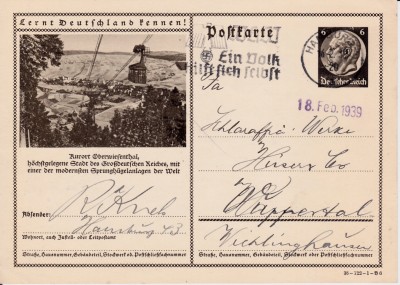 Lernt Deutschland kennen!
Postkarte
6 6
Deutsches Reich
Ein Volk
hilft sich selbst
18. Feb. 1939
Kurort Oberwiesenthal,
höchstgelegene Stadt des Großdeutschen Reiches, mit
einer der modernsten Sprunghügelanlagen der Welt
Absender:
Hamburg
Wohnort, auch Zustell- oder Leitpostamt
Straße, Hausnummer, Gebäudeteil, Stockwerk od. Postschließfachnummer
Fa
Schlaraffia-Werke
Hüser & Co
Wuppertal
Vichlinghausen
Straße, Hausnummer, Gebäudeteil, Stockwerk oder Postschließfachnummer
36-122-1-B6